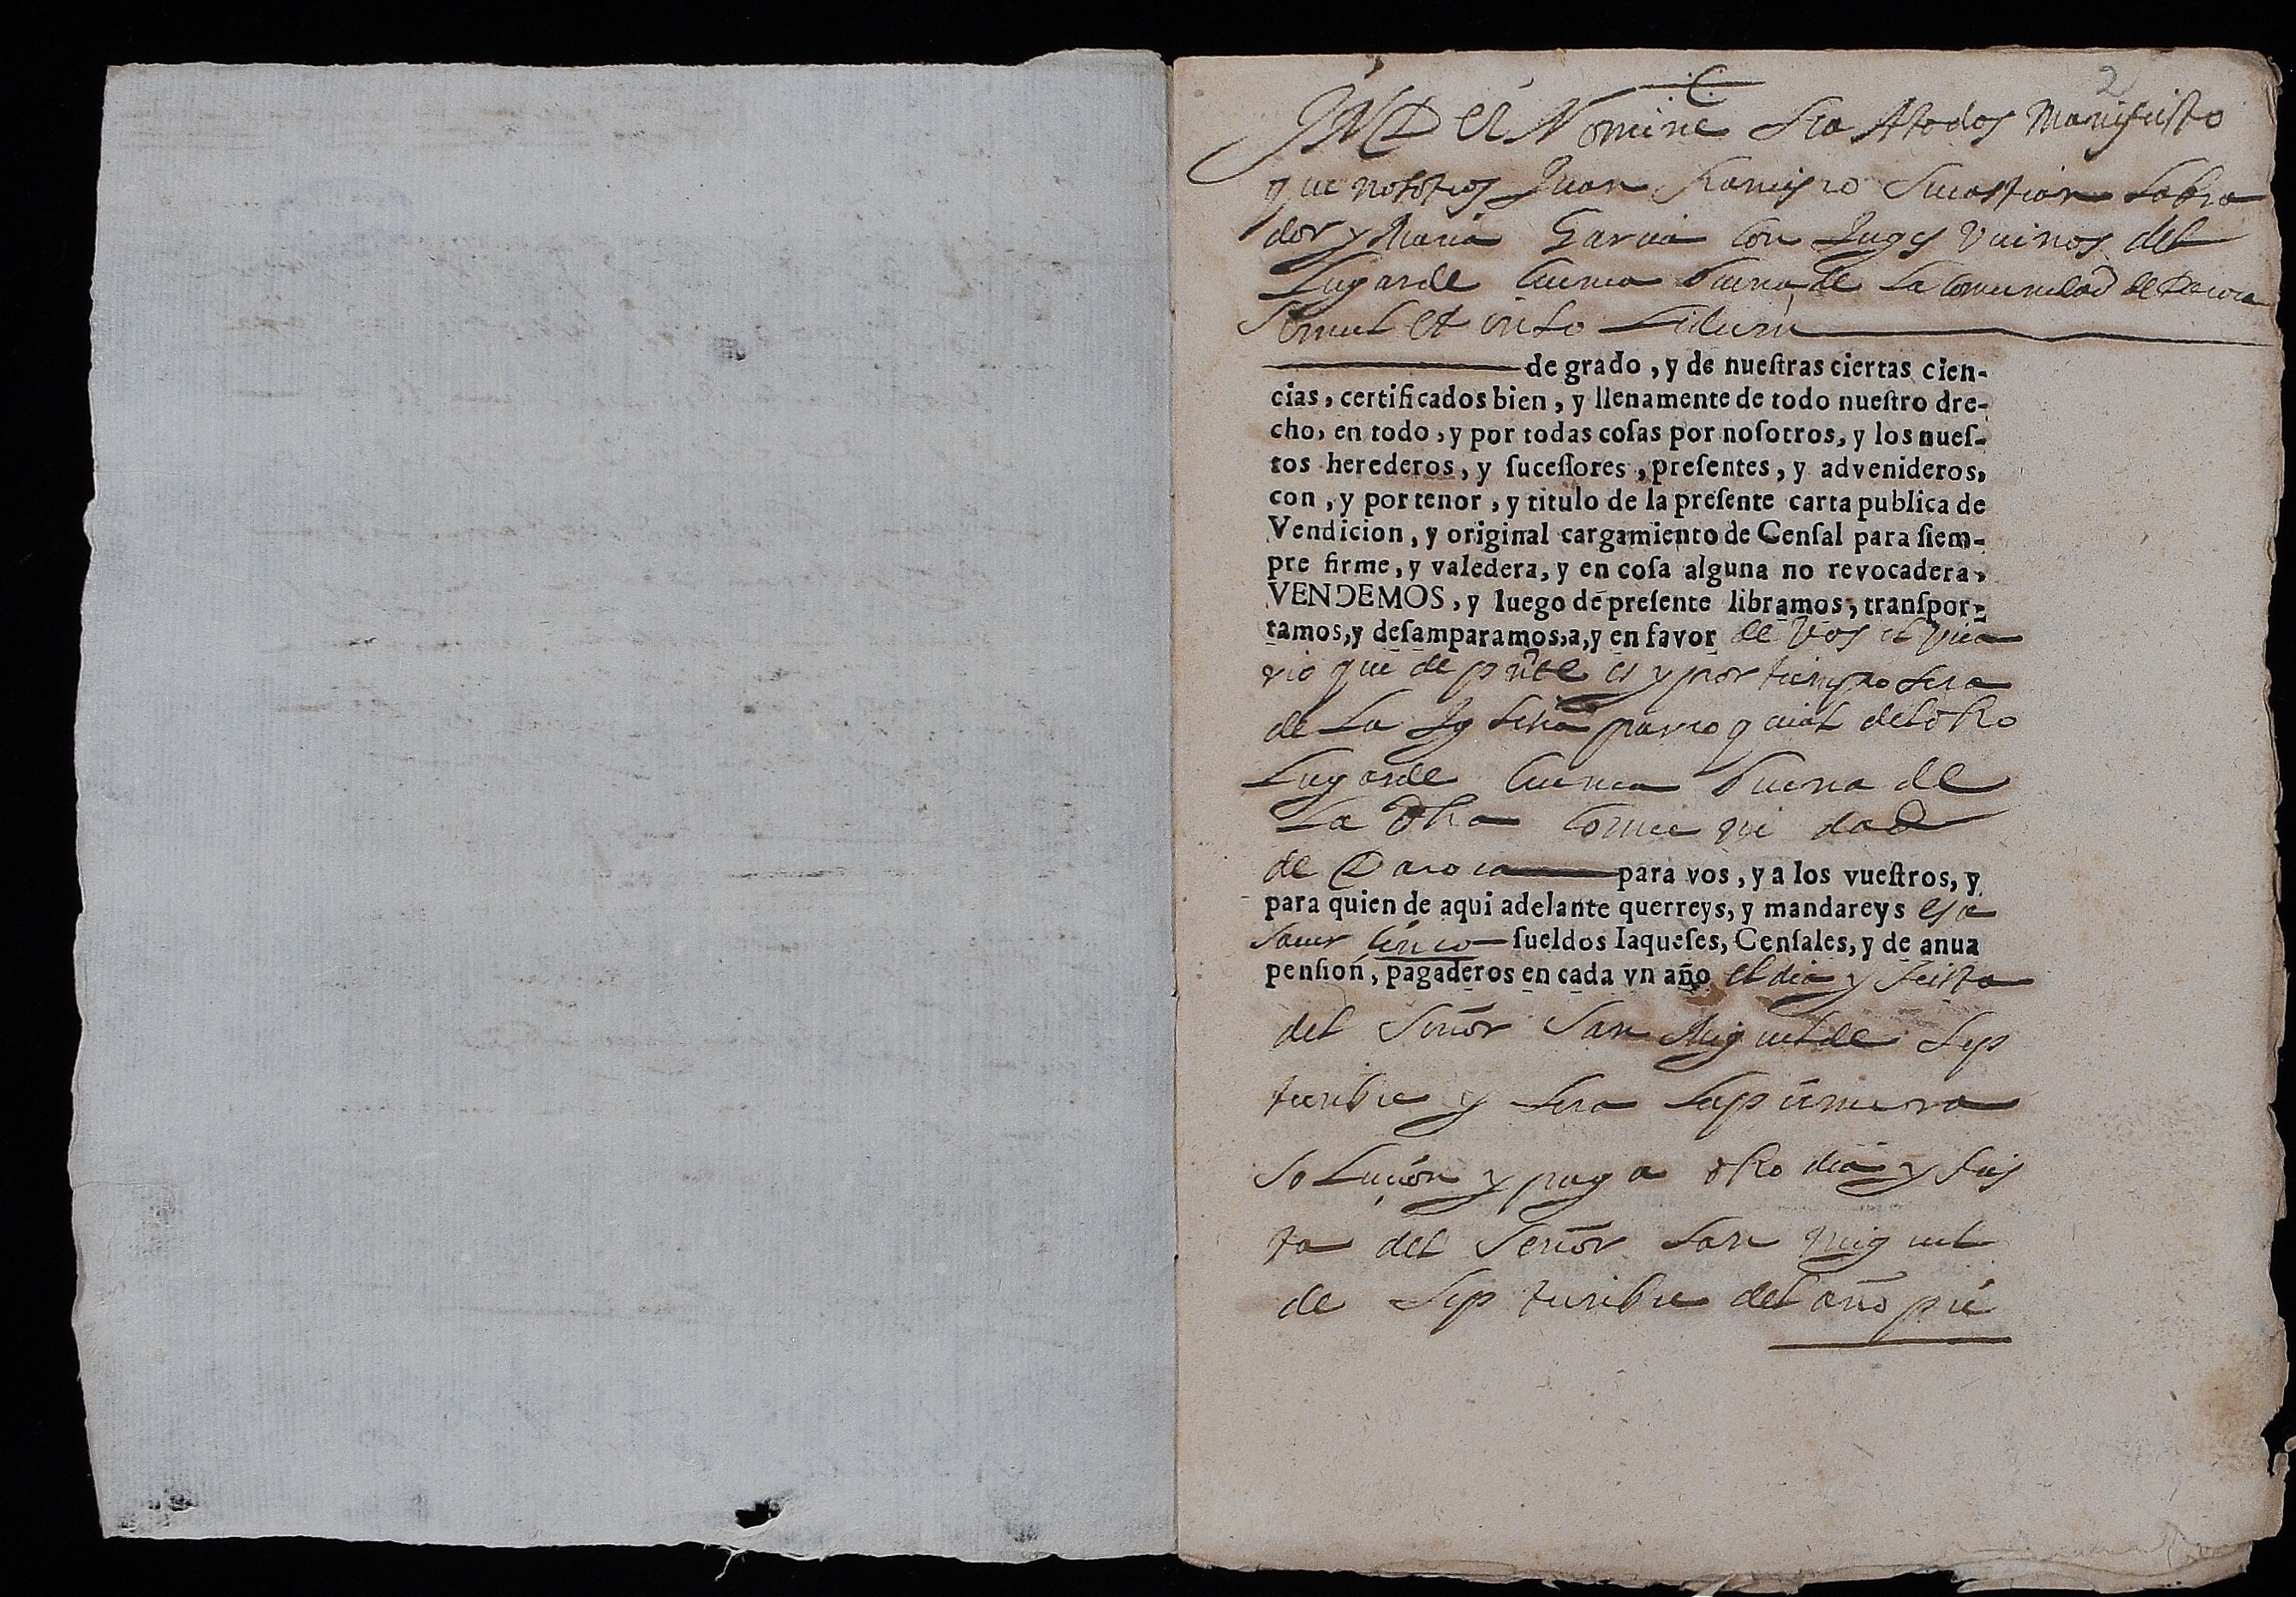 2
In Dei Nomine sea Atodos Manifiesto
que nosotros Juan Ramiro Labra
dor y Maria Garcia Con Juges Vecinos del
Lugar de Cuenca buena de La Comunidad de Daroca
Simul et in solidum
de grado, y de nueſtras ciertas cien-
cias, certificados bien, y llenamente de todo nueſtro dre-
cho, en todo, y por todas coſas por noſotros, y los nueſ-
tos herederos, y ſuceſſores, preſentes, y advenideros,
con, y por tenor, y titulo de la preſente carta publica de
Vendicion, y original cargamiento de Cenſal para ſiem-
pre firme, y valedera, y en coſa alguna no revocadera,
VENDEMOS, y luego de preſente libramos, tranſpor-
tamos, y deſamparamos, a, y en favor de Vos el Vica
rio que de pnte es y por tiempo sera
de La Iglesia parroquial del dho
Lugar de Cuenca buena de
La dha Comunidad
de Daroca para vos, y a los vueſtros, y
para quien de aqui adelante querreys, y mandareys es a
saver Cinco ſueldos Iaqueſes, Cenſales, y de anua
penſion, pagaderos en cada vn año el dia y fiesta
del Señor San Miguel de Sep
tiembre y sera la primera
solucion y paga dho dia y fies
ta del Señor San Miguel
de Septiembre del año pri